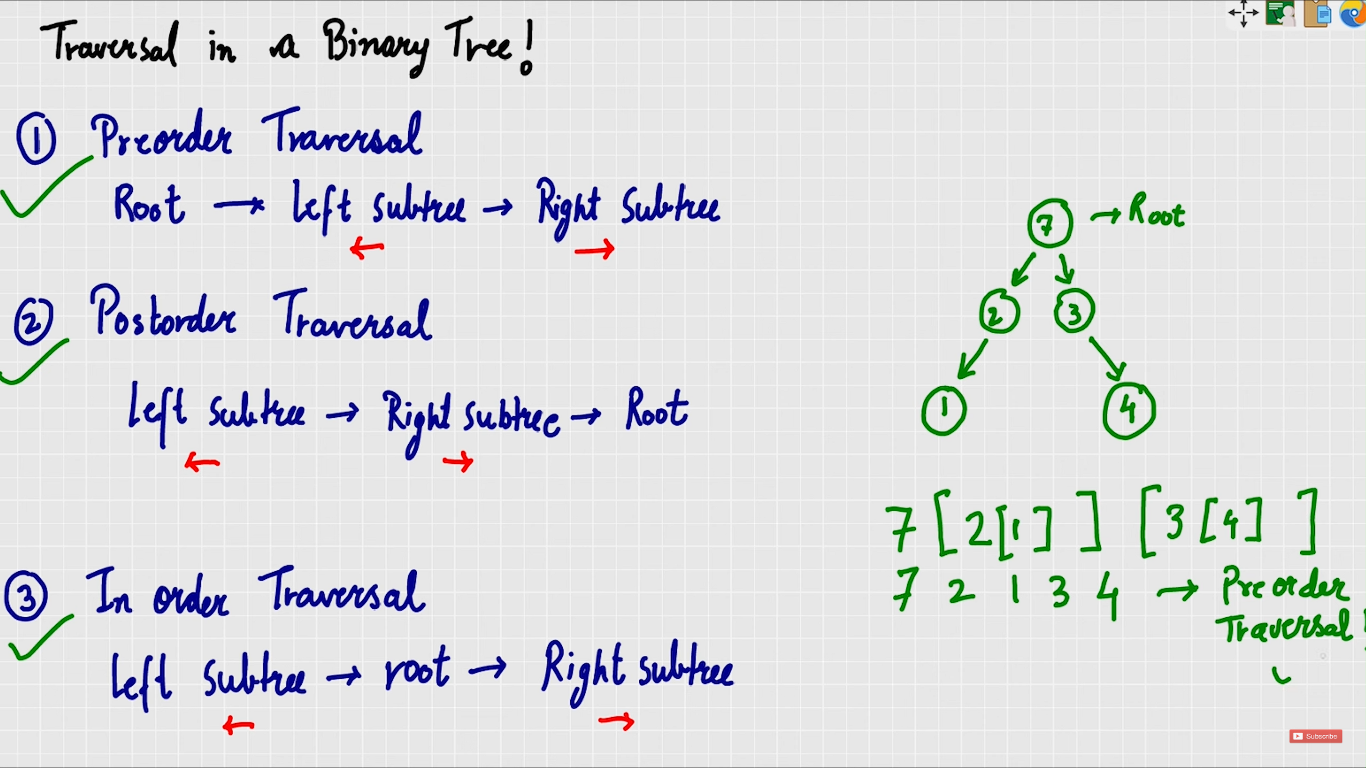 Traversal in a Binary Tree!
① Preorder Traversal
Root → Left subtree → Right Subtree
② Postorder Traversal
Left subtree → Right subtree → Root
③ In order Traversal
Left subtree → root → Right subtree
7 → Root
2 3
1 4
7 [ 2[1] ] [ 3 [4] ]
7 2 1 3 4 → Preorder
Traversal!
Subscribe